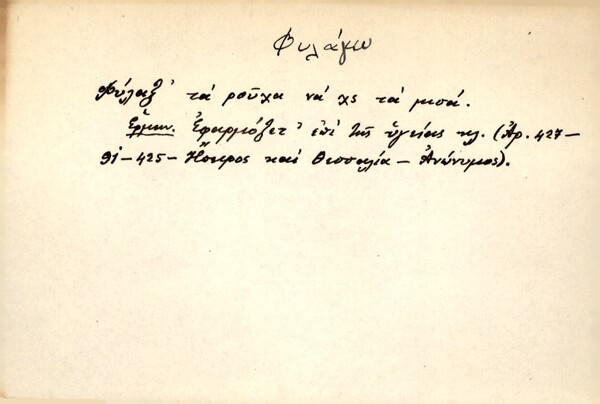 Φυλάγω
Φύλαξ' τά ροῦχα νά χς τά μισά.
Ἑρμην. Ἐφαρμόζετ' ἐπί τῆς ὑγείας κλ. (Ἀρ. 427-
91-425- Ἤπειρος καί Θεσσαλία - Ἀνώνυμος).